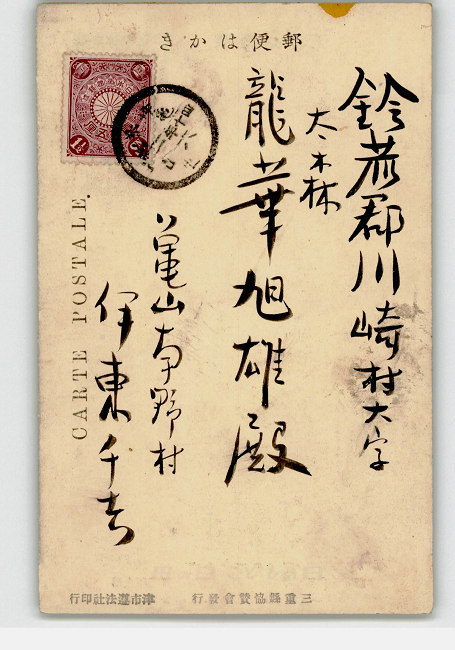 きかは便郵
鈴鹿郡川崎村大字
大森
龍華旭雄殿
亀山
野村
伊東千吉
CARTE POSTALE.
三重縣協賛會發行
津市
法社印行